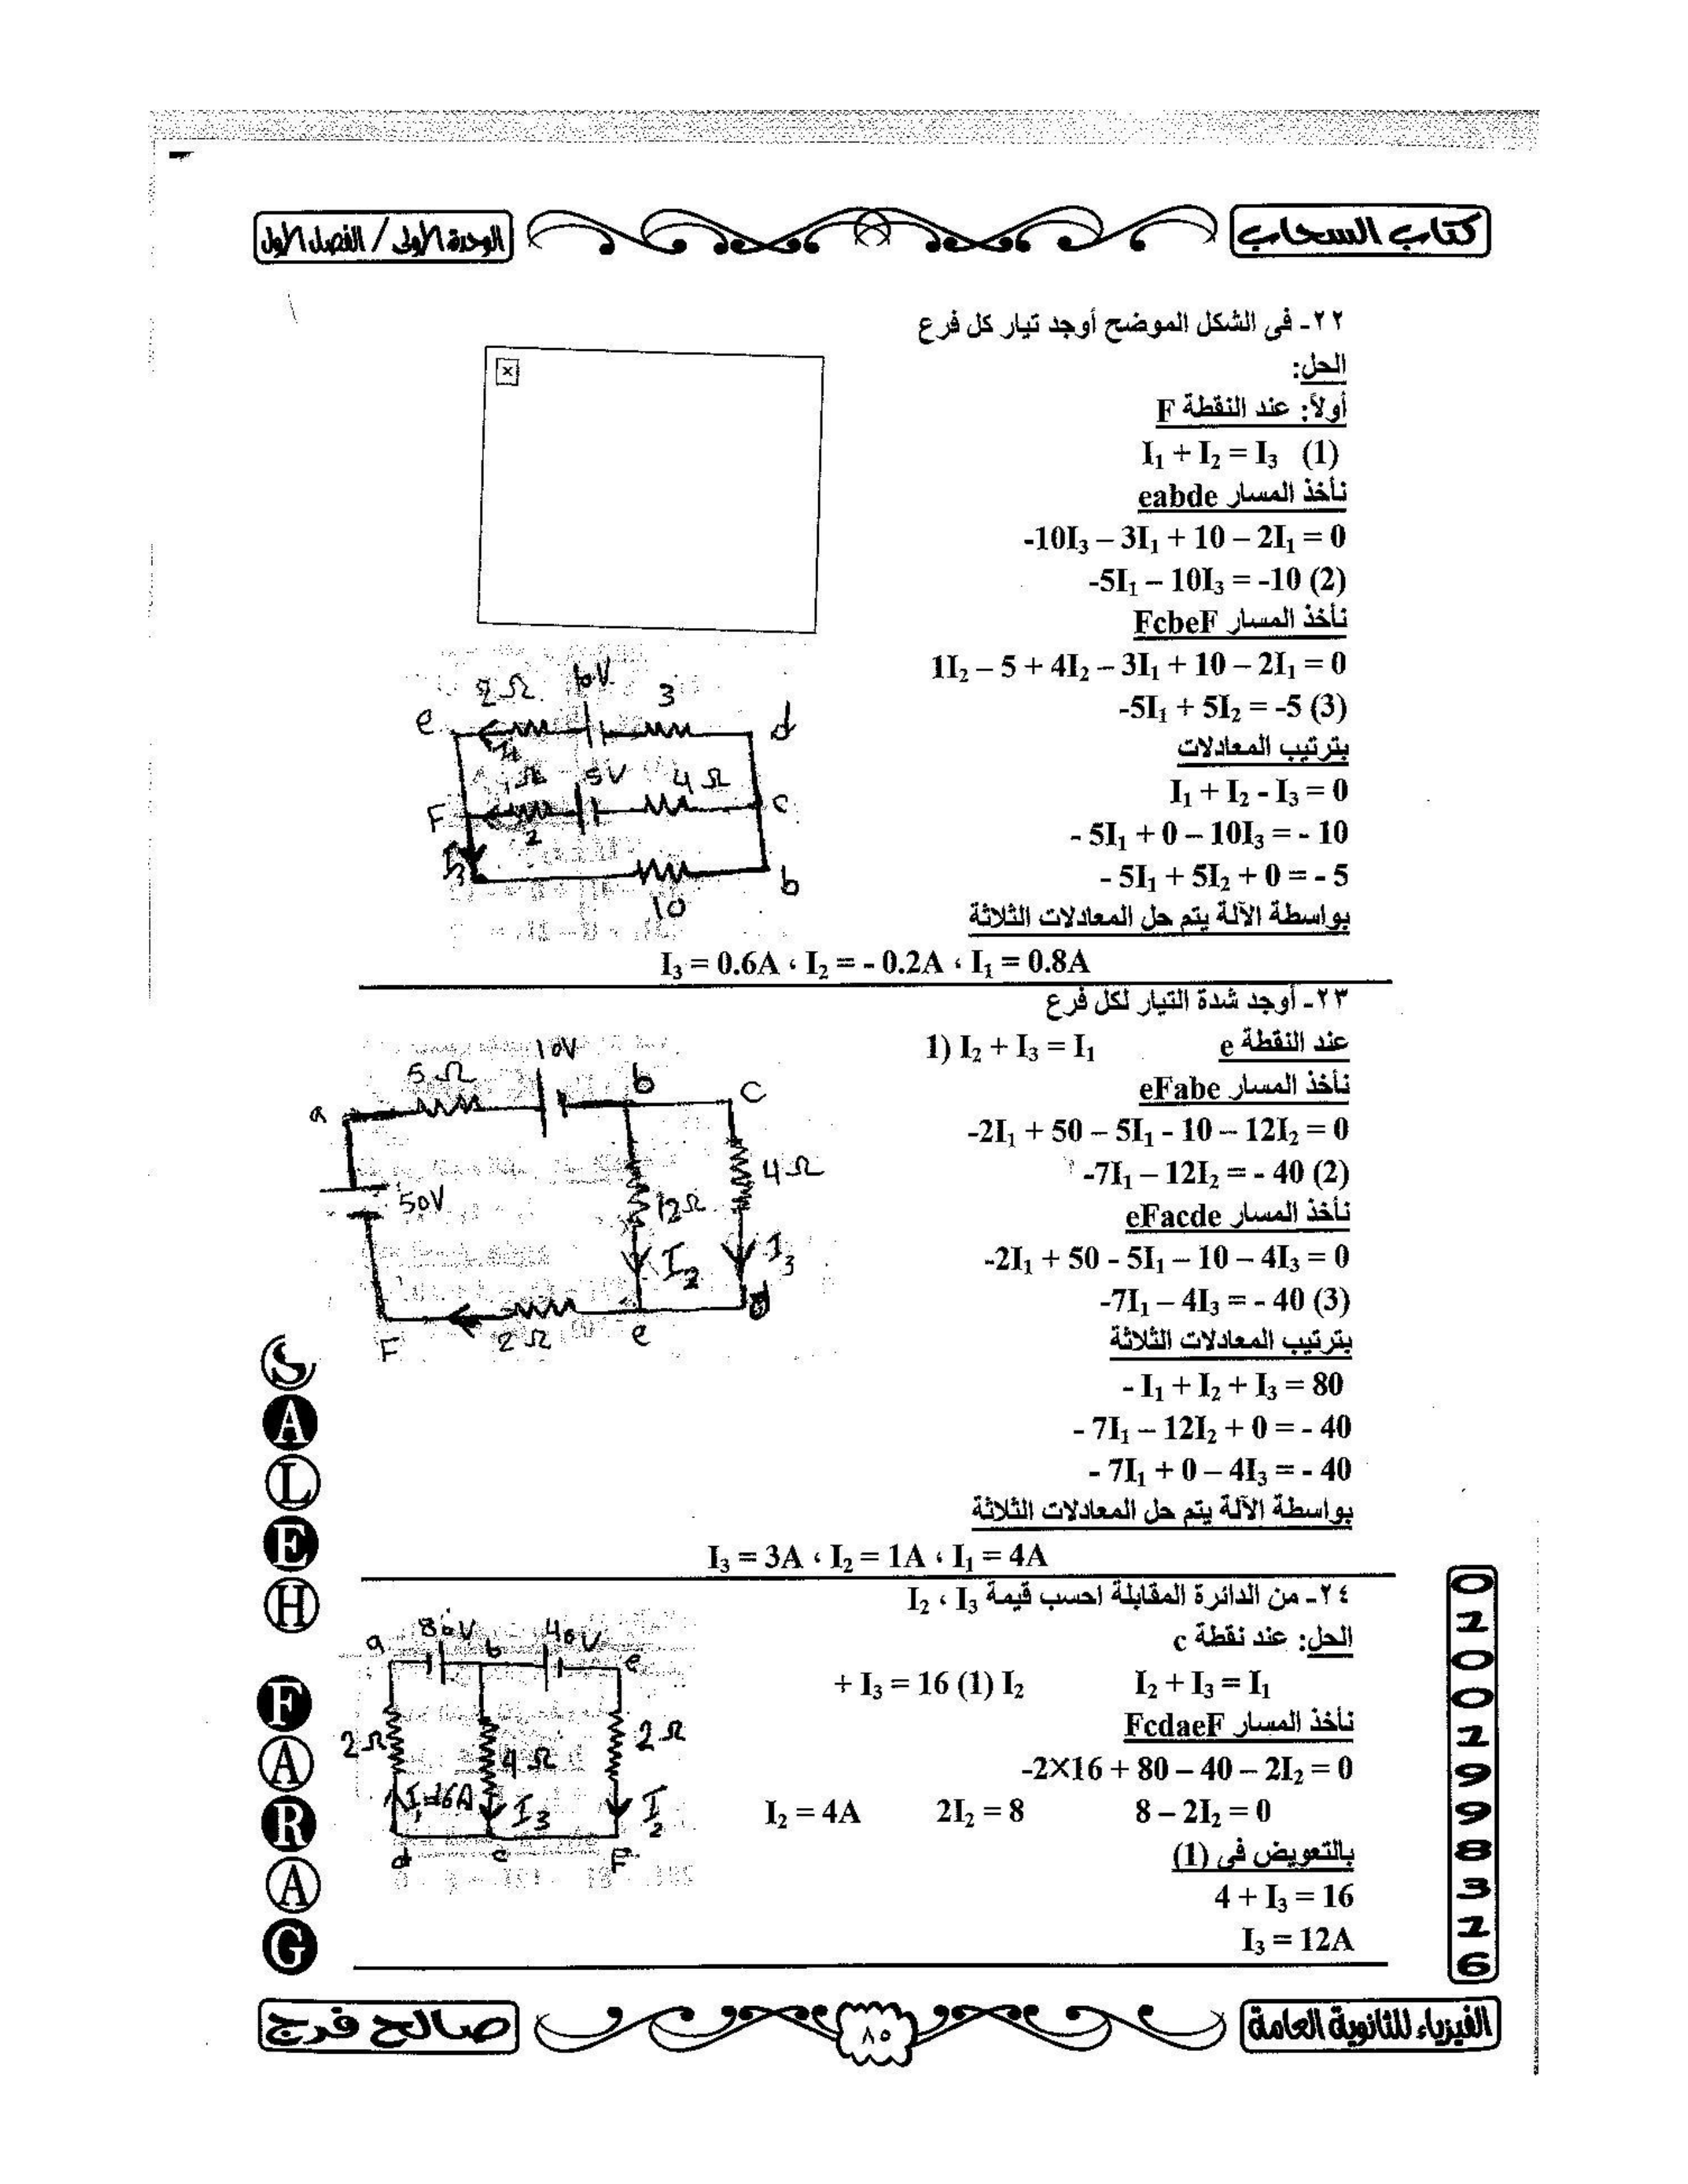 كتاب السحاب
الوحدة الأولى / الفصل الأول
٢٢- فى الشكل الموضح أوجد تيار كل فرع
الحل:
أولاً: عند النقطة F
I₁ + I₂ = I₃ (1)
نأخذ المسار eabde
-10I₃ – 3I₁ + 10 – 2I₁ = 0
-5I₁ – 10I₃ = -10 (2)
نأخذ المسار FcbeF
1I₂ – 5 + 4I₂ – 3I₁ + 10 – 2I₁ = 0
-5I₁ + 5I₂ = -5 (3)
بترتيب المعادلات
I₁ + I₂ - I₃ = 0
- 5I₁ + 0 – 10I₃ = - 10
- 5I₁ + 5I₂ + 0 = - 5
بواسطة الآلة يتم حل المعادلات الثلاثة
I₃ = 0.6A ، I₂ = - 0.2A ، I₁ = 0.8A
2Ω
3
e
d
5V
4Ω
F
c
2
I₃
b
10
٢٣- أوجد شدة التيار لكل فرع
عند النقطة e
1) I₂ + I₃ = I₁
نأخذ المسار eFabe
-2I₁ + 50 – 5I₁ - 10 – 12I₂ = 0
-7I₁ – 12I₂ = - 40 (2)
نأخذ المسار eFacde
-2I₁ + 50 - 5I₁ – 10 – 4I₃ = 0
-7I₁ – 4I₃ = - 40 (3)
بترتيب المعادلات الثلاثة
- I₁ + I₂ + I₃ = 80
- 7I₁ – 12I₂ + 0 = - 40
- 7I₁ + 0 – 4I₃ = - 40
بواسطة الآلة يتم حل المعادلات الثلاثة
I₃ = 3A ، I₂ = 1A ، I₁ = 4A
10V
5Ω
b
c
a
4Ω
50V
12Ω
I₂
I₃
d
F
2Ω
e
٢٤- من الدائرة المقابلة احسب قيمة I₂ ، I₃
الحل: عند نقطة c
I₂ + I₃ = I₁
+ I₃ = 16 (1) I₂
نأخذ المسار FcdaeF
-2×16 + 80 – 40 – 2I₂ = 0
8 – 2I₂ = 0
2I₂ = 8
I₂ = 4A
بالتعويض فى (1)
4 + I₃ = 16
I₃ = 12A
80V
40V
a
b
e
2Ω
4Ω
2Ω
I₁=16A
I₃
I₂
d
c
F
SALEH FARAG
01001998316
الفيزياء للثانوية العامة
٨٥
صالح فرج